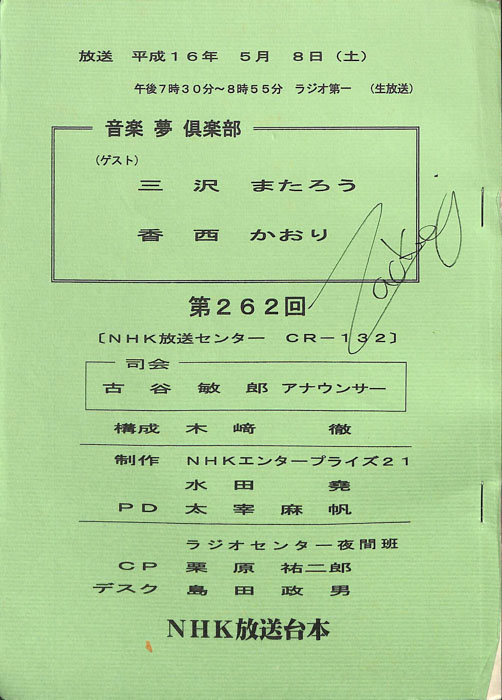 放送 平成16年 5月 8日(土)
午後7時30分～8時55分 ラジオ第一 (生放送)
音楽 夢 倶楽部
(ゲスト)
三沢 またろう
香西 かおり
第262回
〔NHK放送センター CR-132〕
司会
古谷 敏郎 アナウンサー
構成 木﨑 徹
制作 NHKエンタープライズ21
水田 堯
PD 太宰麻帆
ラジオセンター夜間班
CP 栗原祐二郎
デスク 島田政男
NHK放送台本